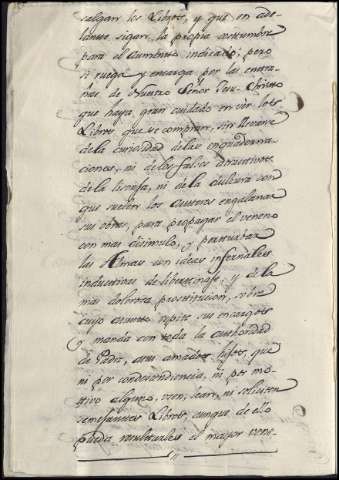 salgan los Libros, y que en ade-
lante sigan la propia costumbre
para el aumento indicado; pero
si ruega y encarga por las entra-
ñas de Nuestro Señor Jesu-Christo
que haya gran cuidado en ver los
Libros que se compran, sin llevarse
de la curiosidad de las enquaderna-
ciones, ni de los falsos atractivos
de la lisonja, ni de la dulzura con
que suelen los Autores engalanar
sus obras, para propagar el veneno
con mas disimulo, y perturbar
las Almas con ideas infernales
inductivas de libertinage, y de la
mas dolorosa prostitucion, sobre
cuyo asunto repite sus encargos
y manda con toda la authoridad
de Padre, a sus amados hijos, que
ni por condescendencia, ni por mo-
tivo alguno, vean, lean, ni soliciten
semejantes Libros, aunque de ello
pueda resultarles el mayor vene-